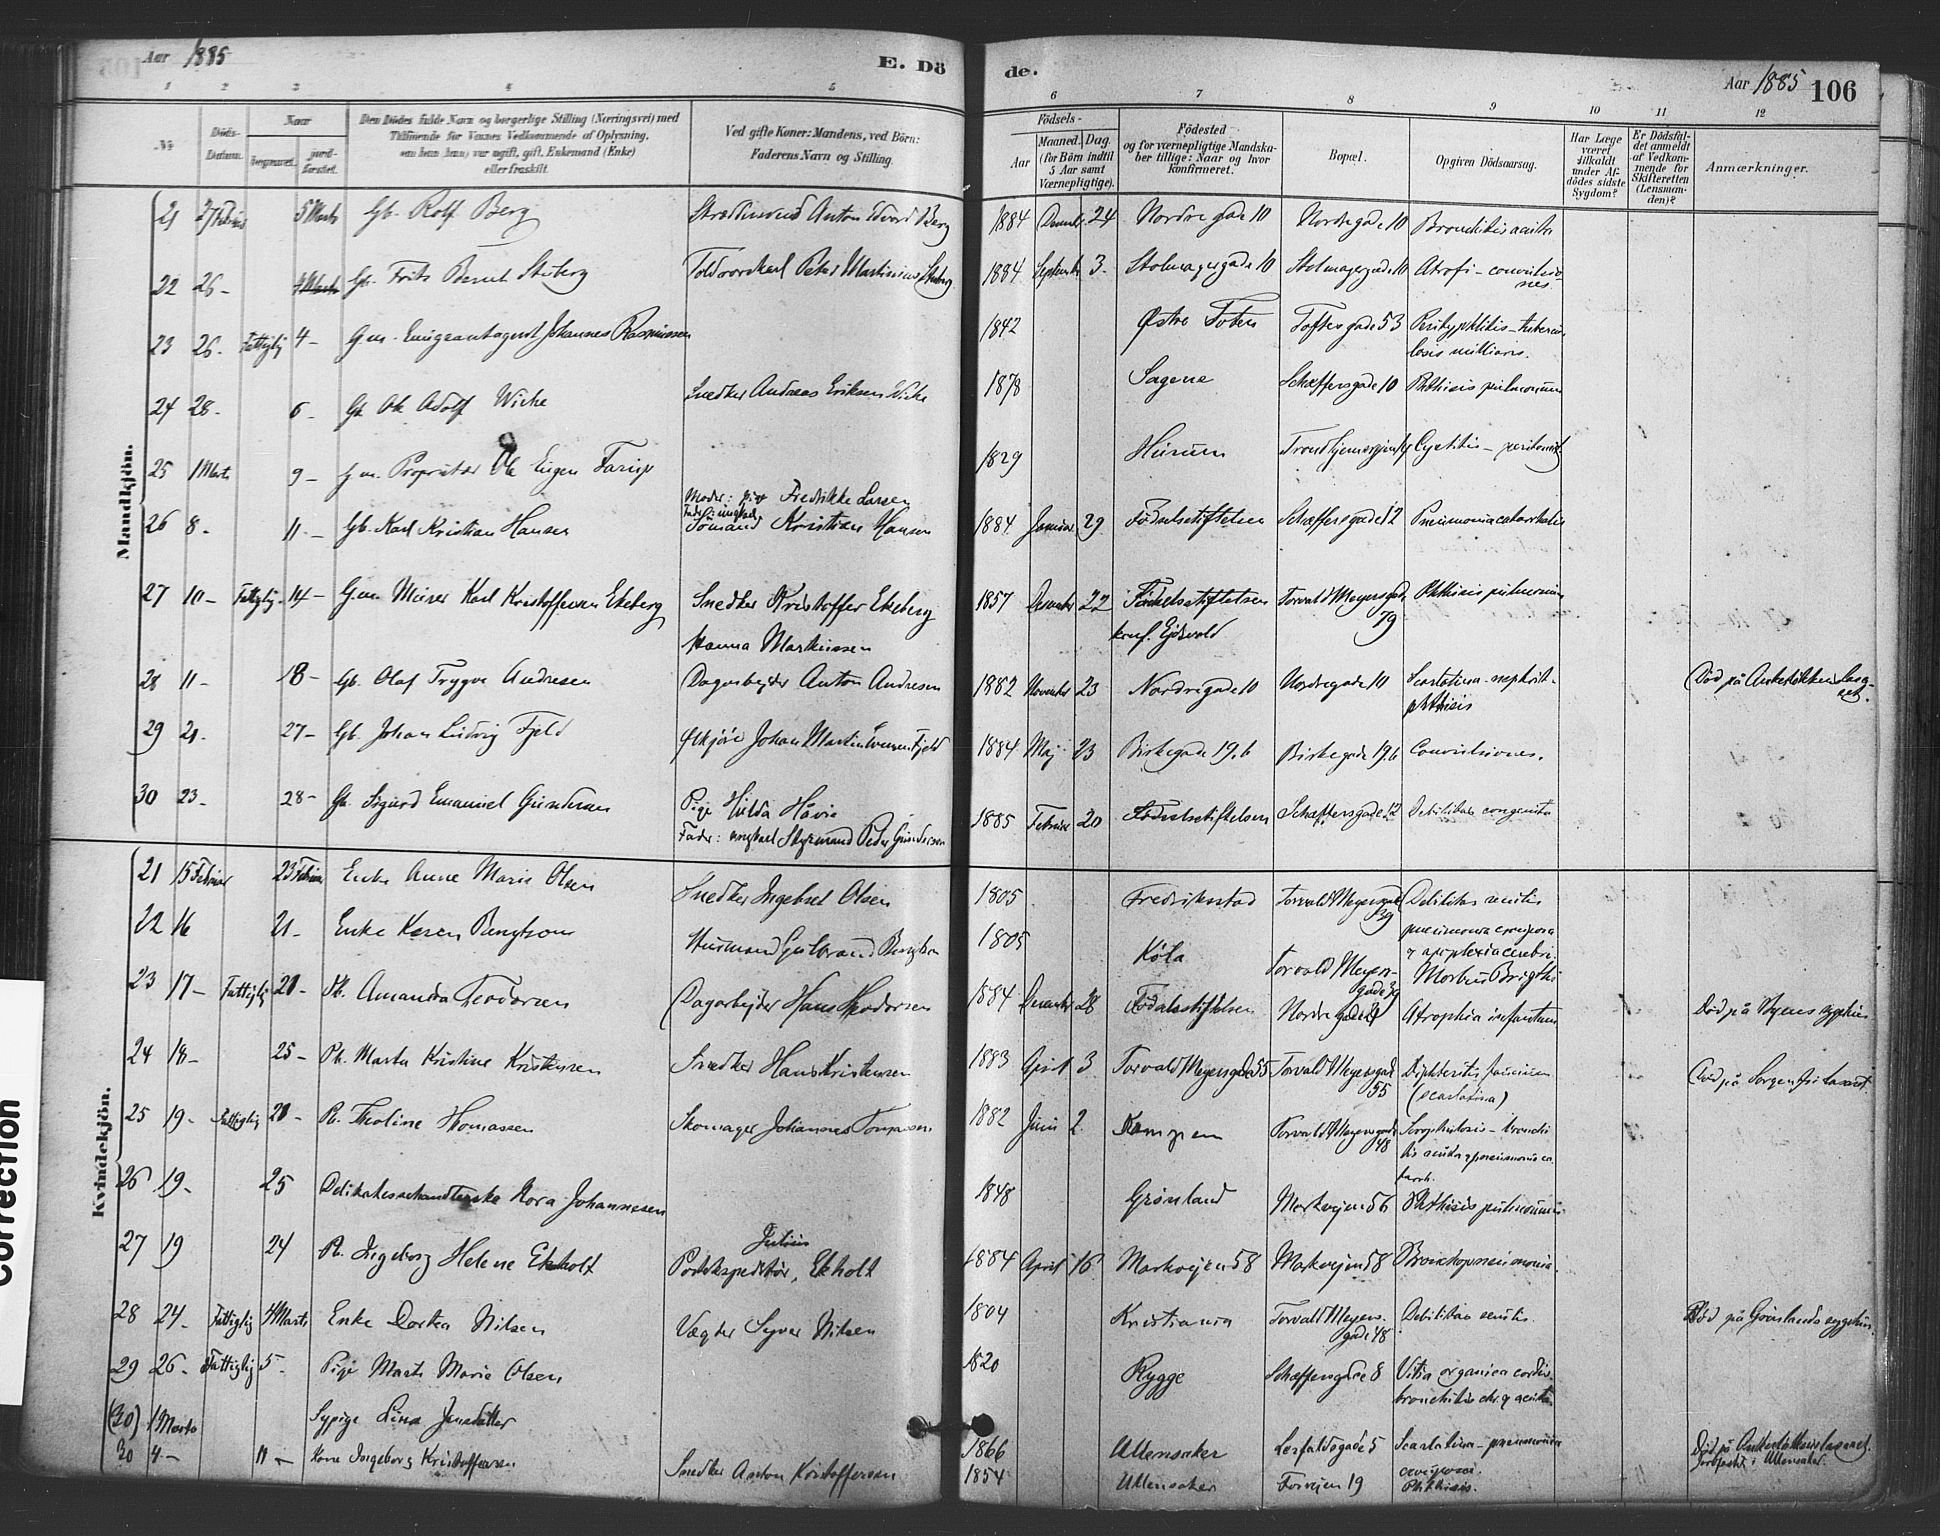 Aar 1885
E. Dö
de.
Aar 1885 106
1 2 3 4 5 6 7 8 9 10 11 12
No
Döds-Datum.
Naar
begravet.
jord-fæstet.
Den Dödes fulde Navn og borgerlige Stilling (Næringsvei) med
Tilföiende for Voxnes Vedkommende af Oplysning,
om han (hun) var ugift, gift, Enkemand (Enke)
eller fraskilt.
Ved gifte Koner: Mandens, ved Börn:
Faderens Navn og Stilling.
Födsels-
Aar
Maaned. Dag
(for Börn indtil
5 Aar samt
Værnepligtige).
Födested
og for værnepligtige Mandska-
ber tillige: Naar og hvor
konfirmeret.
Bopæl.
Opgiven Dödsaarsag.
Har Læge
været
tilkaldt
under Af-
dödes sidste
Sygdom?
Er Dödsfal-
det anmeldt
af Vedkom-
mende for
Skifteretten
(Lensman-
den)?
Anmærkninger.
Mandkjön.
21 27 Februar 5 Marts Gb. Rolf Berg Anton Edvard Berg 1884 Decembr. 24 Nordre gade 10 Nordregade 10 Bronchitis acuta
22 26 - 4 Marts Gb. Frits Bernt Stuberg Peter Martinius Stuberg 1884 September 3. Stolmagergade 10 Stolmagergade 10 Atrofi - convulsio-
nes.
23 26 - Fattiglig 4 - Gm. Emigrantagent Johannes Rasmussen 1842 Østre Toten Toftesgade 53 Perityphlitis - tubercu-
losis miliaris.
24 28 - 6 - Gb. Ole Adolf Wiche Snedker Andreas Eriksen Wiche 1878 Sagene Schæffersgade 10 Phthisis pulmonum
25 1 Marts 9 - Gm. Proprietær Ole Eugen 1829 Hurum Cystitis - peritonit
Moder: pige Fredrikke Larsen
26 8 - 11 - Gb. Karl Kristian Hansen Fader: ungkarl Sömand Kristian Hansen 1884 Januar 29 Födselsstiftelsen Schæffersgade 12 Pneumonia catarrhalis
27 10 - Fattiglig 14 - Gm. Murer Karl Kristoffersen Ekeberg Snedker Kristoffer Ekeberg 1857 Desember 22 Födselsstiftelsen Torvald Meyersgade Phthisis pulmonum
79
konf. Ejdsvold
Hanna Markussen
28 11 - 18 - Gb. Olaf Trygve Andresen Dagarbejder Anton Andresen 1882 November 23 Nordregade 10 Nordregade 10 Scarlatina - nephrit - Död på Ankerlökkens Lasa-
phthisis ret.
29 21 - 27 - Gb. Johan Ludvig Fjeld Ølkjöre Johan Martin Evensen Fjeld 1884 Maj 23 Birkegade 19.b Birkegade 19.b Convulsiones.
30 23 - 28 - Gb. Sigurd Emanuel Gundersen Pige Hilda Håvie 1885 Februar 20 Födselsstiftelsen Schæffersgade 12 Debilitas congenita
Fader: ungkarl Styrmand Peder Gundersen
Kvindekjön.
21 15 Februar 23 Februar Enke Anne Marie Olsen Snedker Ingebret Olsen 1805 Fredriksstad Torvald Meyersgade 39 Debilitas senilis
22 16 21 - Enke Karen Bengtson Husmand Gulbrand Bengtson 1805 Köla Torvald Meyers-
gade 39 pneumonia crouposa
& apoplexia cerebri.
Morbus Brigthi
23 17 - Fattiglig 21 - Pb. Amanda Teodorsen Dagarbejder Hans Theodorsen 1884 December 28 Födselsstiftelsen Nordregade Atrophia infantum Död på Byens sygehus
24 18 - 25 - Pb. Marta Kristine Kristensen Snedker Hans Kristensen 1883 April 3 Torvald Meyersgade 55 Torvald Meyersgade
55 Diphteritis faucium
(scarlatina) Död på Sorgenfri Lasaret
25 19 - Fattiglig 21 - Pb. Theoline Thomassen Skomager Johannes Tomassen 1882 Juni 2. Kampen Torvald Meyersgade
48 Scrophulosis - bronchi-
tis acuta & pneumonia ca-
tarrh.
26 19 - 25 Delikatessehandlerske Nora Johannesen 1848 Grönland Markvejen 56 Phthisis pulmonum
27 19 24 Pb. Ingeborg Helene Ekholt Postekspeditör, Julius Ekholt 1884 April 16 Markvejen 58 Markvejen 58 Bronchopneumonia.
28 24 - Fattiglig 4 Marts Enke Dortea Nilsen Vægter Syver Nilsen 1804 Kristiania Torvald Meyers-
gade 48 Debilitas senilis Död på Grönlands sygehus.
29 26 - Fattiglig 5 - Pige Marte Marie Olsen 1820 Rygge Schæffersgade 8 Vitia organica cordis.
bronchitis chr. & acuta
(30) 1 Marts Sypige Lina Jensdatter 1866 Ullensaker 5 Scarlatina - pneumonia
crouposa. Död på Ankerlökkens lasaret.
Jordfæstet i Ullensaker.
30 4 - 11 - Kone Ingeborg Kristoffersen Snedker Anton Kristoffersen 1854 Ullensaker Forvejen 19 Phthisis.
Correction